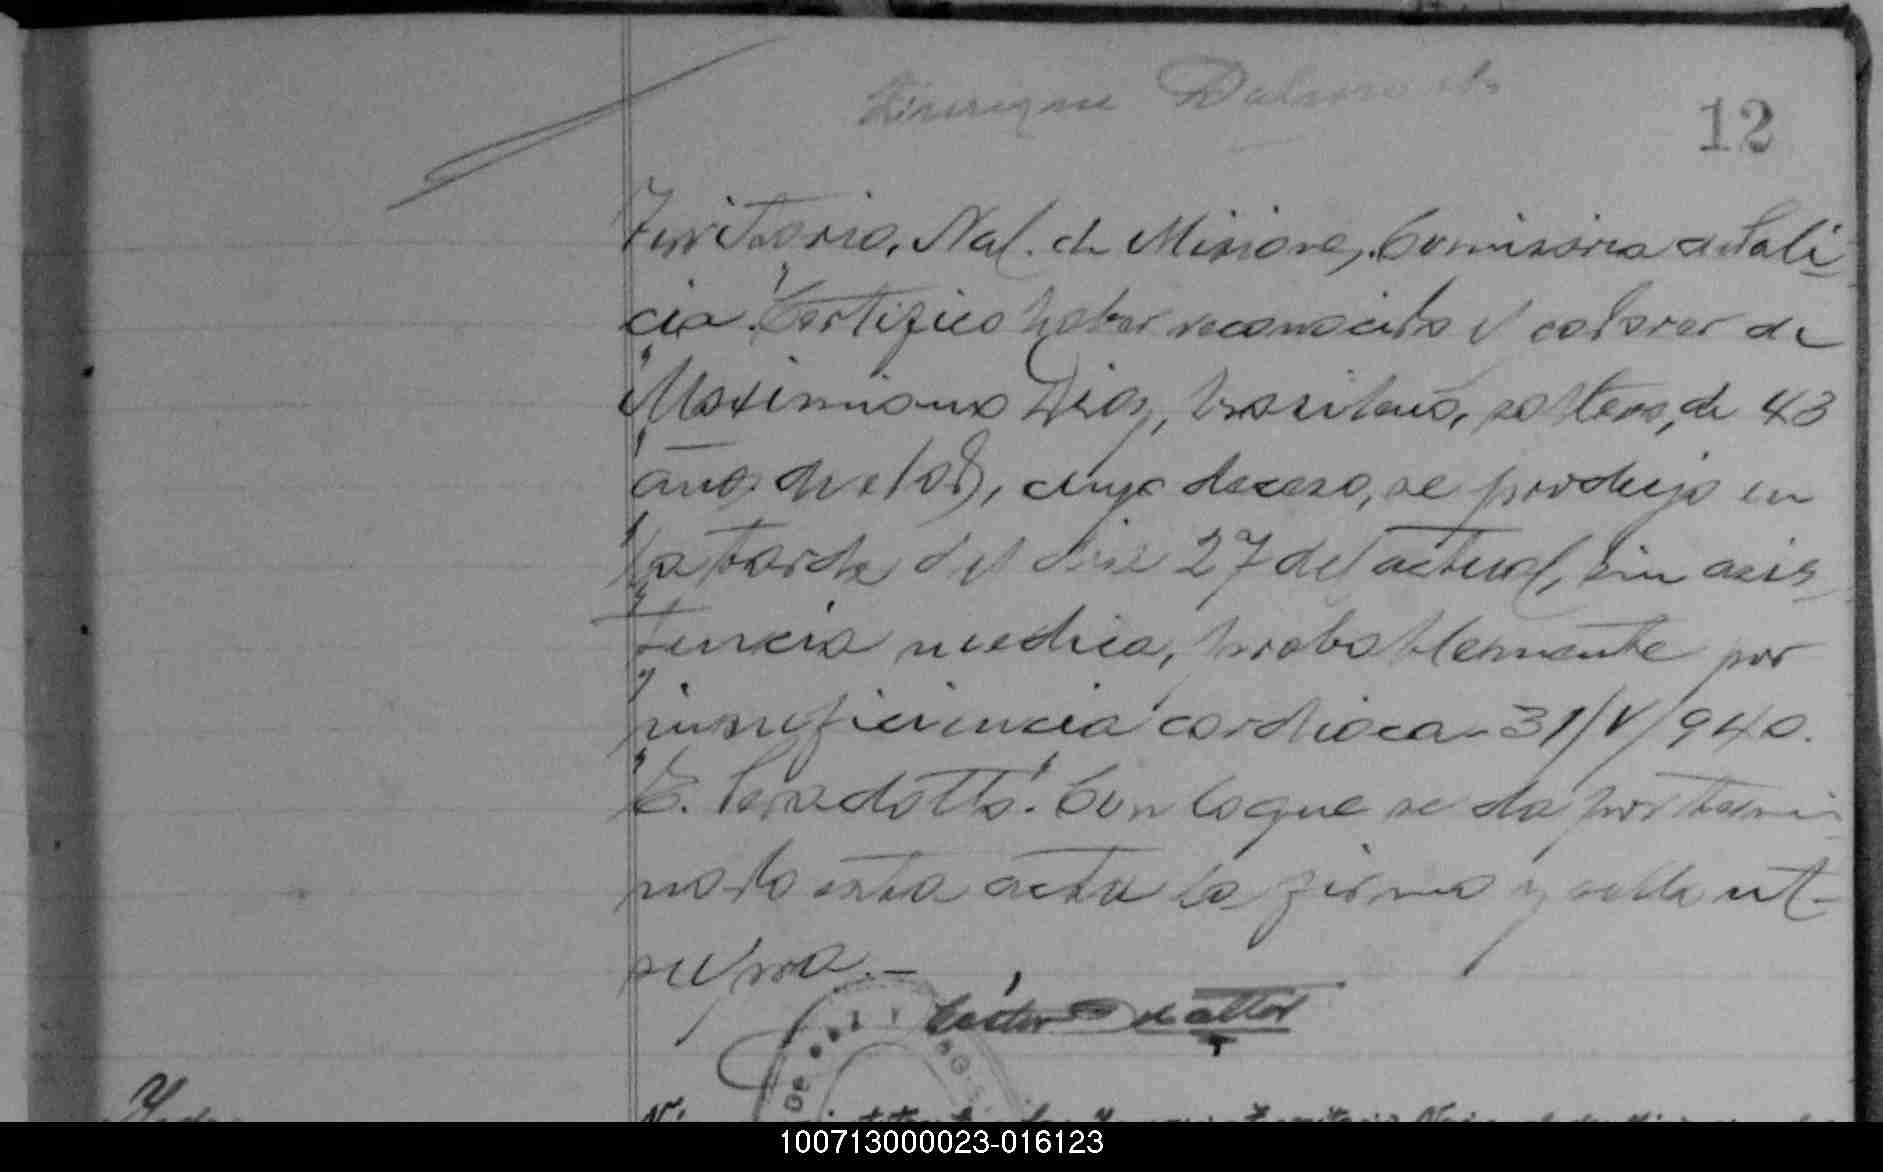 Enrique
12
Territorio, Nal. de Misiones, Comisaria de Poli-
cia. Certifico haber reconocido el cadaver de
Maximiano Diaz, brasileño, soltero, de 43
años de edad, cuyo deceso, se produjo en
la tarde del dia 27 del actual, sin asis-
tencia medica, probablemente por
insuficiencia cardiaca - 31/V/940.
E. Peradotto. Con lo que se da por termi-
nada esta acta la firma y sella ut-
supra. -
DE
100713000023-016123